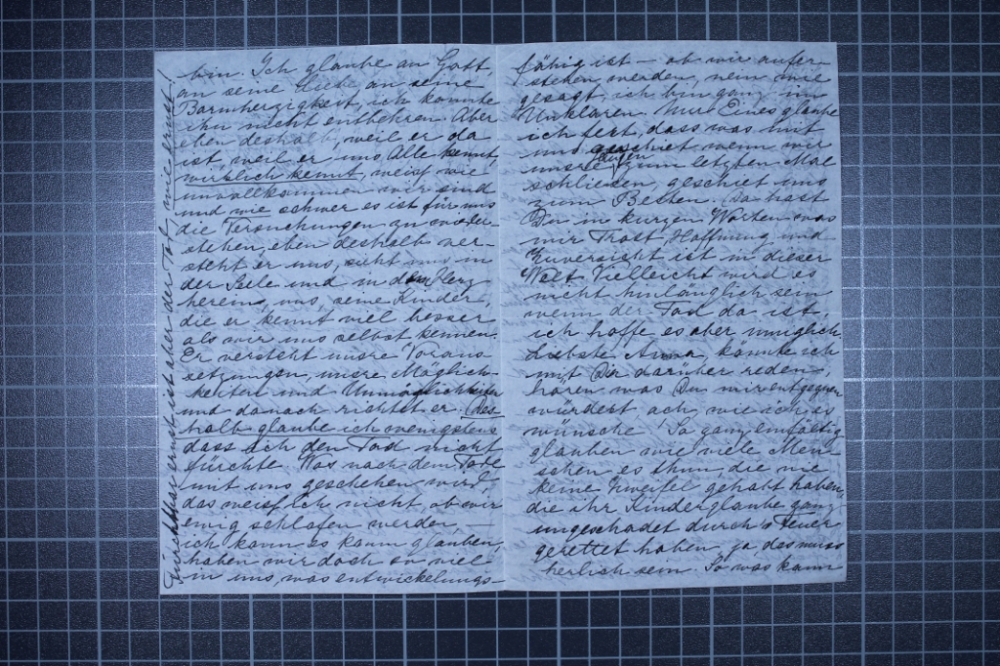 bin. Ich glaube an Gott,
an seine Liebe an seine
Barmherzigkeit, ich konnte
ihn nicht entbehren. Aber
eben deshalb, weil er da
ist, weil er uns Alle kennt,
wirklich kennt, weiss wie
unvollkommen wir sind
und wie schwer es ist für uns
die Versuchungen zu wieder-
stehen, eben deshalb ver-
steht er uns, sieht uns in
der Seele und in dem Herz
herein, uns, seine Kinder,
die er kennt viel besser
als wir uns selbst kennen.
Er versteht unsre Voraus-
setzungen, unsre Möglich-
keiten und Unmöglichkeiten
und danach richtet er. Des-
halb glaube ich wenigstens
dass ich den Tod nicht
fürchte. Was nach dem Tode
mit uns geschehen wird,
das weiss ich nicht, ob wir
ewig schlafen werden, —
ich kann es kaum glauben,
haben wir doch so viel
in uns, was entwickelungs-
Furchtbar ernst ist aber der Tod wie ernst!
fähig ist — ob wir aufer-
stehen werden, nein wie
gesagt, ich bin ganz im
Unklaren. Nur Eines glaube
ich fest, dass was mit
uns geschiet wenn wir
unsre Augen zum letzten Mal
schliessen, geschiet uns
zum Besten. Da hast
Du in kurzen Worten was
mir Trost, Hoffnung und
Zuversicht ist in dieser
Welt. Vielleicht wird es
nicht hinlänglich sein
wenn der Tod da ist,
ich hoffe es aber innuglich
Liebste Anna, könnte ich
mit Dir darüber reden,
hören was Du mir entgegnen
würdest ach, wie ich es
wünsche! So ganz einfältig
glauben wie viele Men-
schen es thun die nie
keine Zweifel gehabt haben,
die ihr Kinderglaube ganz
ungeschadet durch's Feuer
gerettet haben, ja, das muss
herlich sein. So was kann